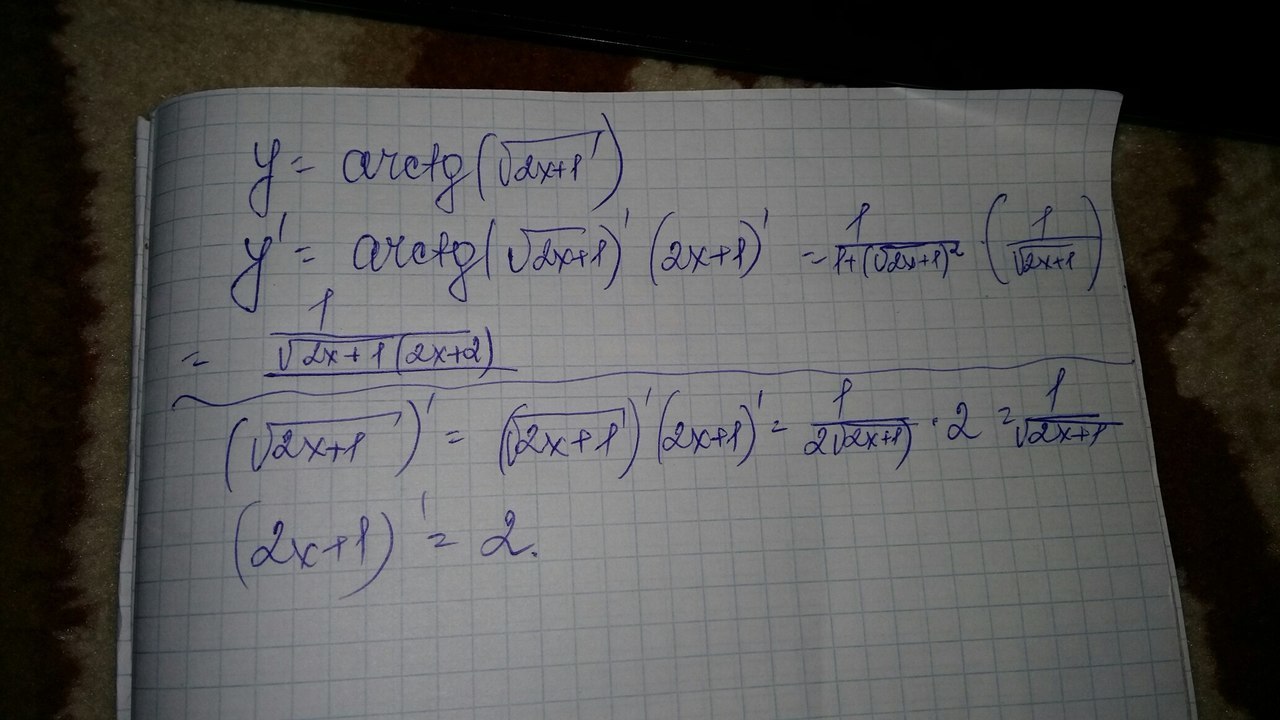 y = arctg(√2x+1)
y' = arctg(√2x+1)' (2x+1)' = 1/(1+(√2x+1)²) · (1/√2x+1)
= 1/(√2x+1 (2x+2))
(√2x+1)' = (√2x+1)' (2x+1)' = 1/(2√2x+1) · 2 = 1/√2x+1
(2x+1)' = 2.